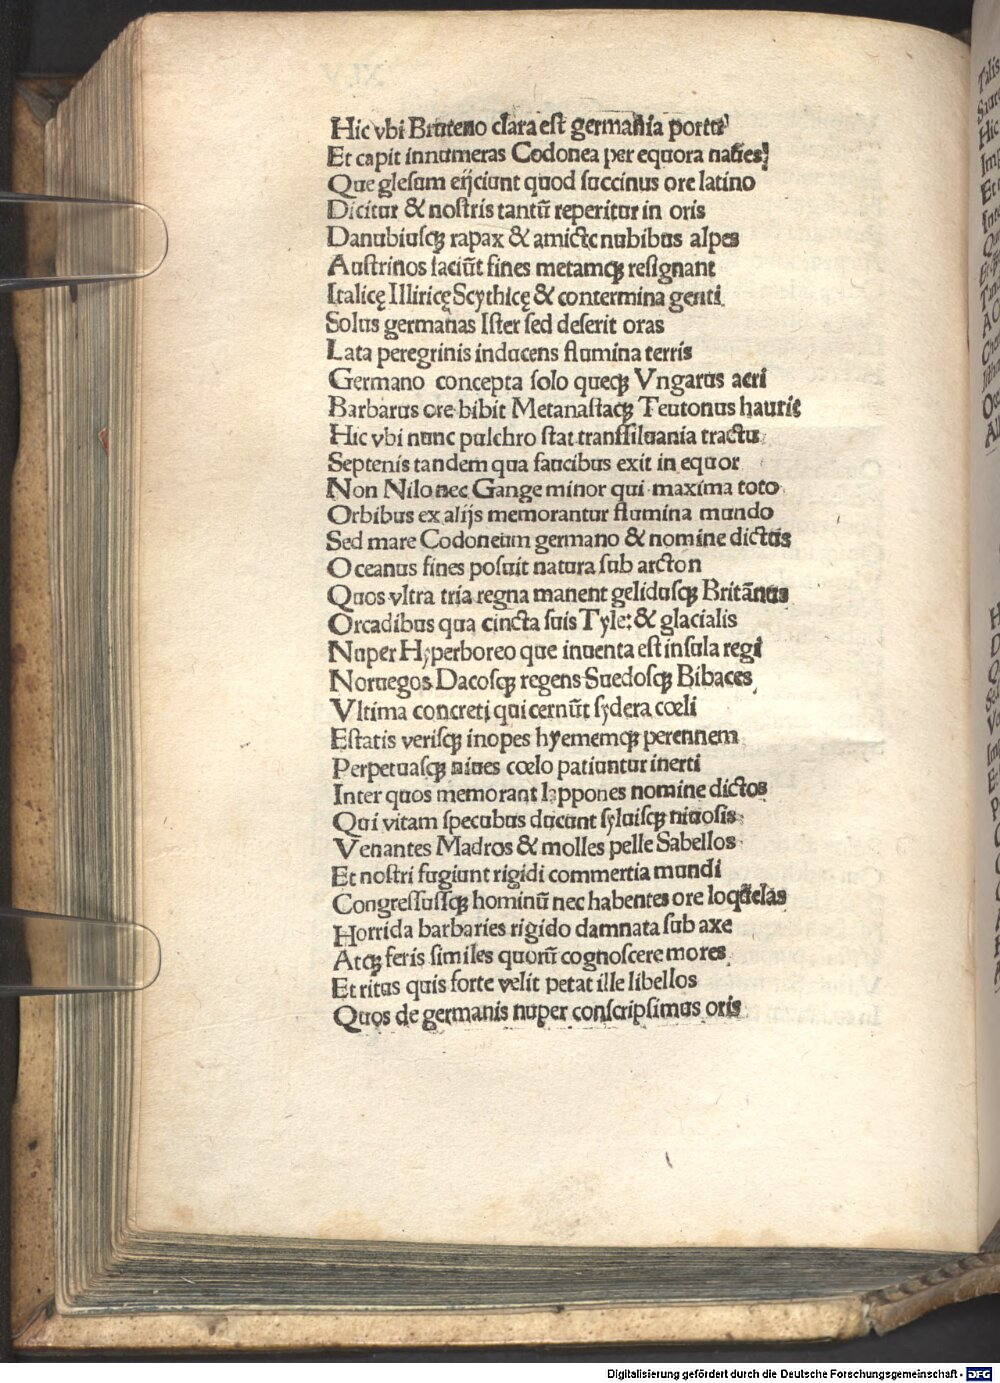 Hic vbi Bruteno clara est germania portu
Et capit innumeras Codonea per equora naues
Que glesum eijciunt quod succinus ore latino
Dicitur & nostris tantū reperitur in oris
Danubiusqȝ rapax & amictę nubibus alpes
Austrinos faciūt fines metamqȝ resignant
Italicę Illiricę Scythicę & contermina genti
Solus germanas Ister sed deserit oras
Lata peregrinis inducens flumina terris
Germano concepta solo queqȝ Vngarus acri
Barbarus ore bibit Metanastaqȝ Teutonus haurit
Hic vbi nunc pulchro stat transsiluania tractu
Septenis tandem qua faucibus exit in equor
Non Nilo nec Gange minor qui maxima toto
Orbibus ex alijs memorantur flumina mundo
Sed mare Codoneum germano & nomine dictus
Oceanus fines posuit natura sub arcton
Quos vltra tria regna manent gelidusqȝ Britānus
Orcadibus qua cincta suis Tyle: & glacialis
Nuper Hyperboreo que inuenta est insula regi
Noruegos Dacosqȝ regens Suedosqȝ Bibaces
Vltima concreti qui cernūt sydera cœli
Estatis verisqȝ inopes hyememqȝ perennem
Perpetuasqȝ niues cœlo patiuntur inerti
Inter quos memorant lappones nomine dictos
Qui vitam specubus ducunt syluisqȝ niuosis
Venantes Madros & molles pelle Sabellos
Et nostri fugiunt rigidi commertia mundi
Congressusqȝ hominū nec habentes ore loquelas
Horrida barbaries rigido damnata sub axe
Atqȝ feris similes quorū cognoscere mores
Et ritus quis forte velit petat ille libellos
Quos de germanis nuper conscripsimus oris
Digitalisierung gefördert durch die Deutsche Forschungsgemeinschaft - DFG